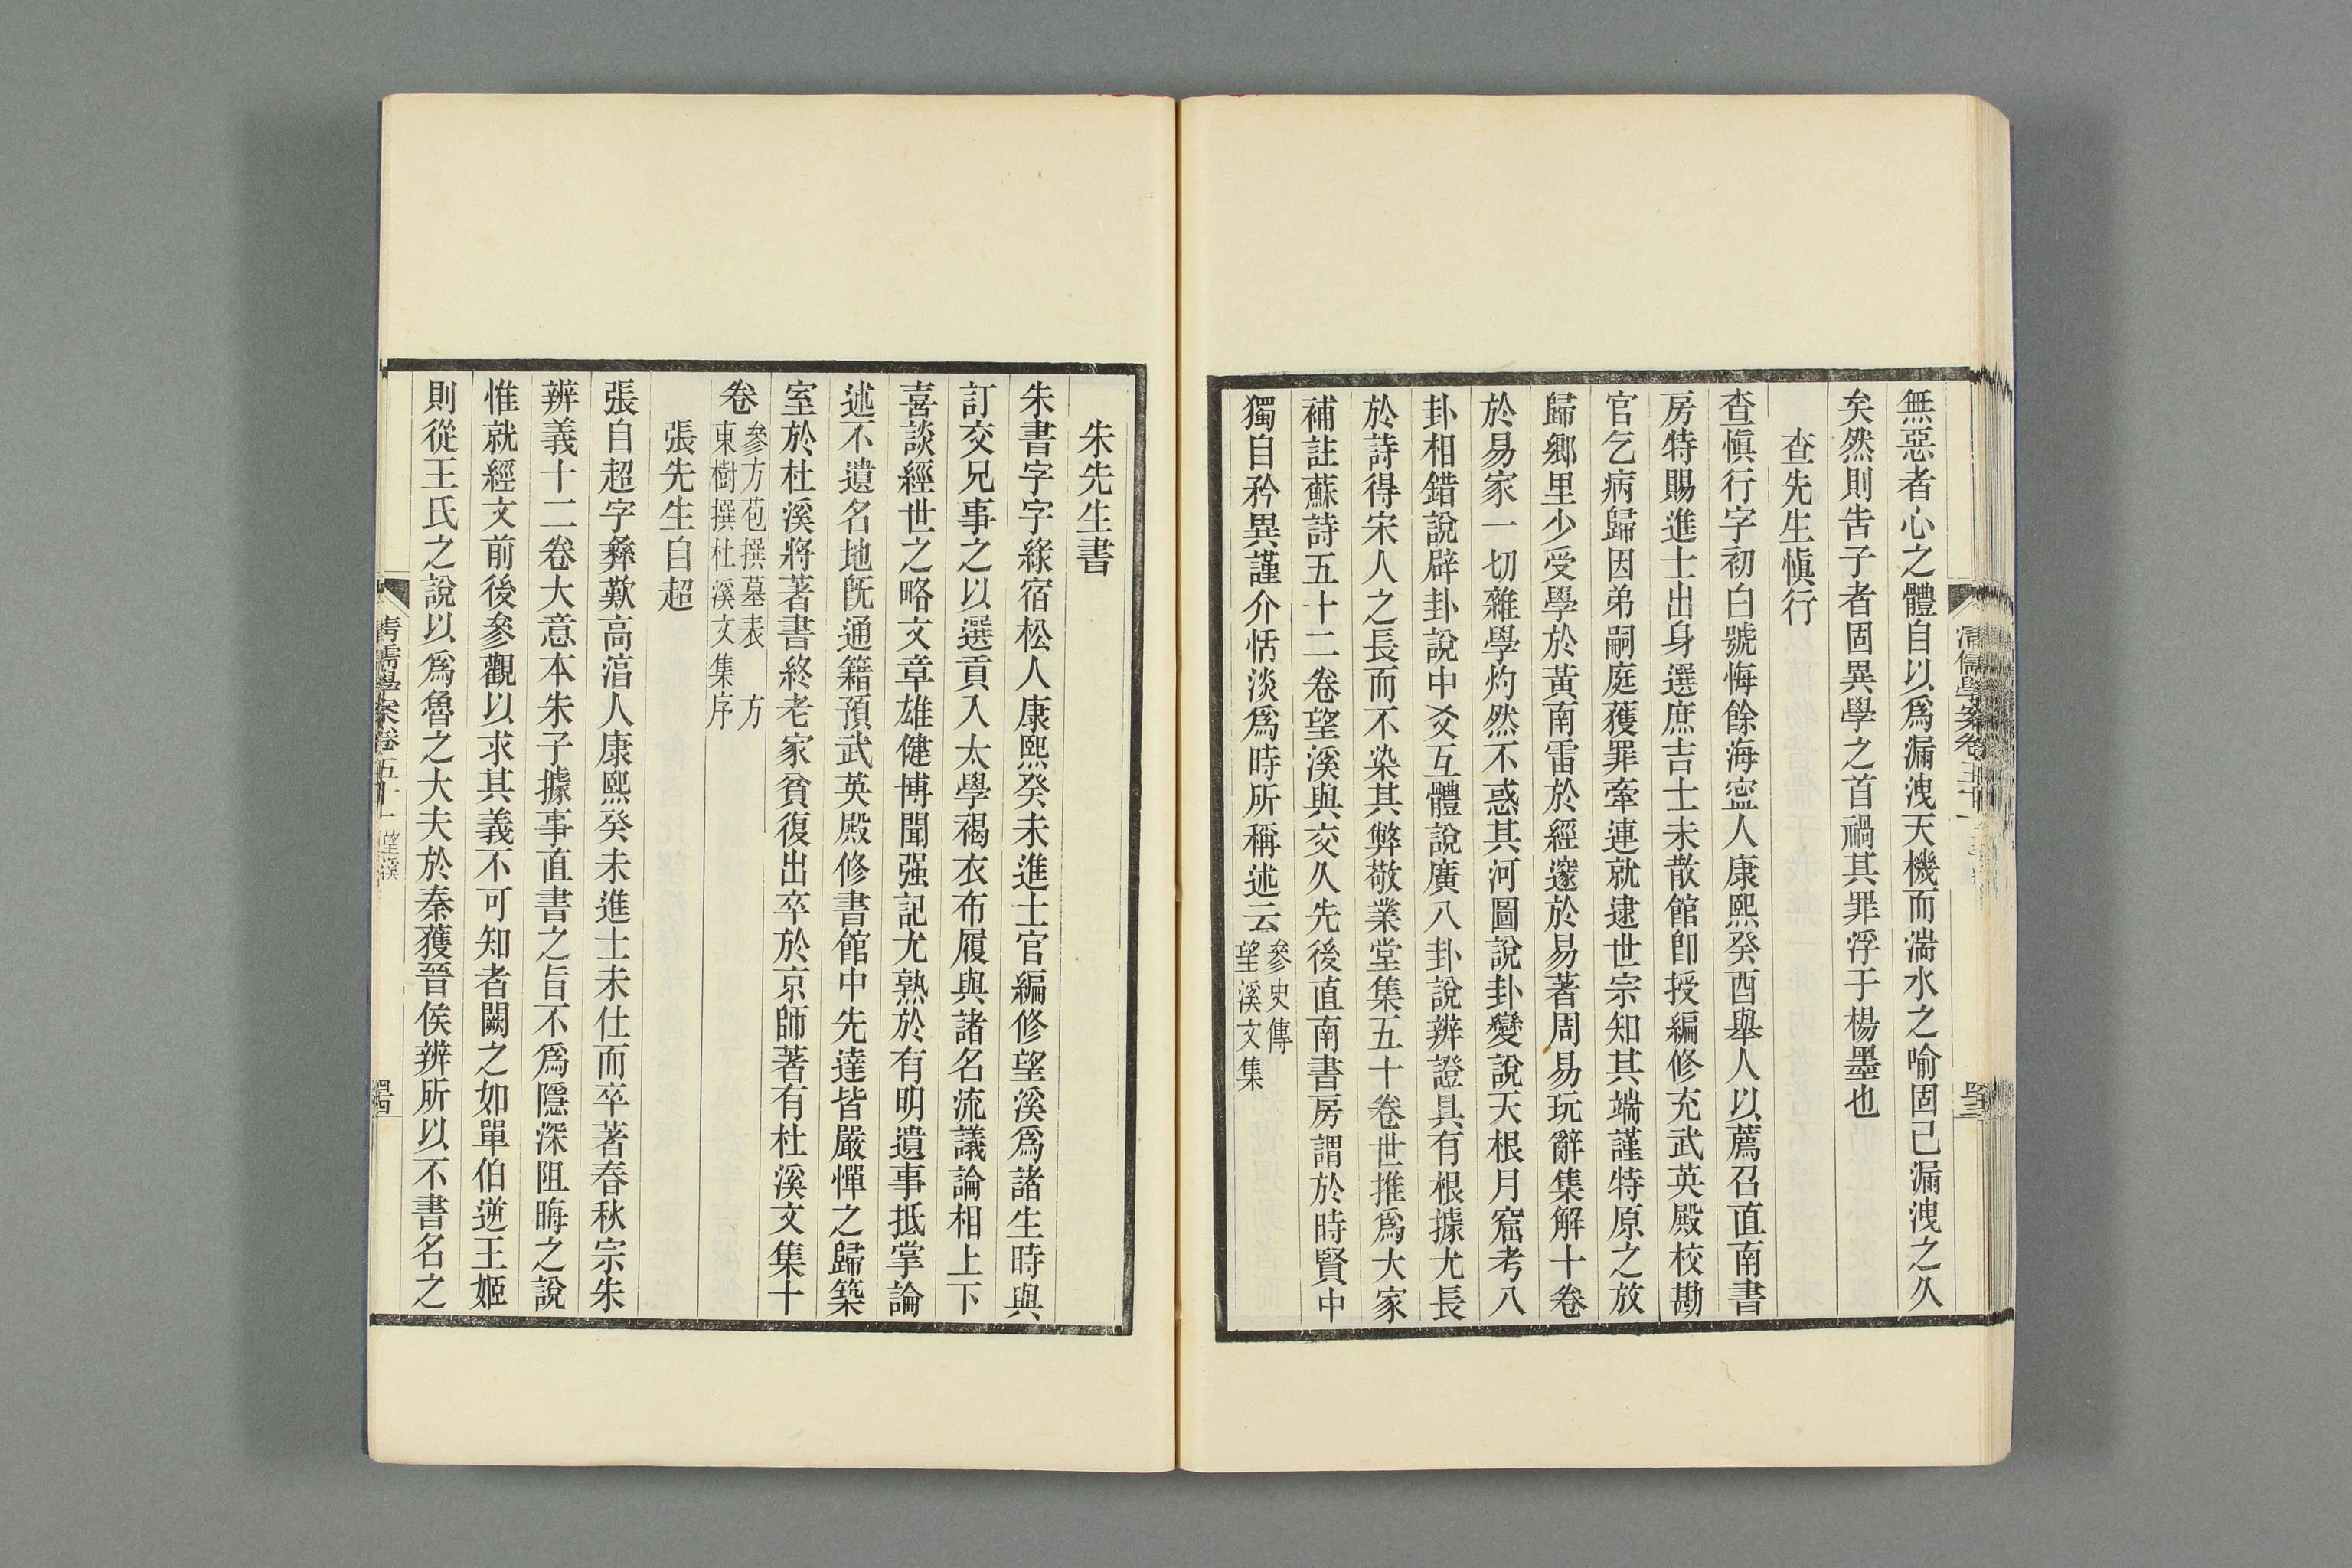 無惡者心之體自以爲漏洩天機而湍水之喻固已漏洩之久
矣然則告子者固異學之首禍其罪浮于楊墨也
查先生愼行
查愼行字初白號悔餘海寍人康熙癸酉舉人以薦召直南書
房特賜進士出身選庶吉士未散館卽授編修充武英殿校勘
官乞病歸因弟嗣庭獲罪牽連就逮世宗知其端謹特原之放
歸鄉里少受學於黃南雷於經邃於易著周易玩辭集解十卷
於易家一切雜學灼然不惑其河圖說卦變說天根月窟考八
卦相錯說辟卦說中爻互體說廣八卦說辨證具有根據尤長
於詩得宋人之長而不染其弊敬業堂集五十卷世推爲大家
補註蘇詩五十二卷望溪與交久先後直南書房謂於時賢中
獨自矜異謹介恬淡爲時所稱述云參史傳
望溪文集
朱先生書
朱書字字綠宿松人康熙癸未進士官編修望溪爲諸生時與
訂交兄事之以選貢入太學褐衣布履與諸名流議論相上下
喜談經世之略文章雄健博聞强記尤熟於有明遺事抵掌論
述不遺名地旣通籍預武英殿修書館中先達皆嚴憚之歸築
室於杜溪將著書終老家貧復出卒於京師著有杜溪文集十
卷參方苞撰墓表 方
東樹撰杜溪文集序
張先生自超
張自超字彝歎高淯人康熙癸未進士未仕而卒著春秋宗朱
辨義十二卷大意本朱子據事直書之旨不爲隱深阻晦之說
惟就經文前後參觀以求其義不可知者闕之如單伯逆王姬
則從王氏之說以爲魯之大夫於秦獲晉侯辨所以不書名之
清儒學案卷五十一 望溪